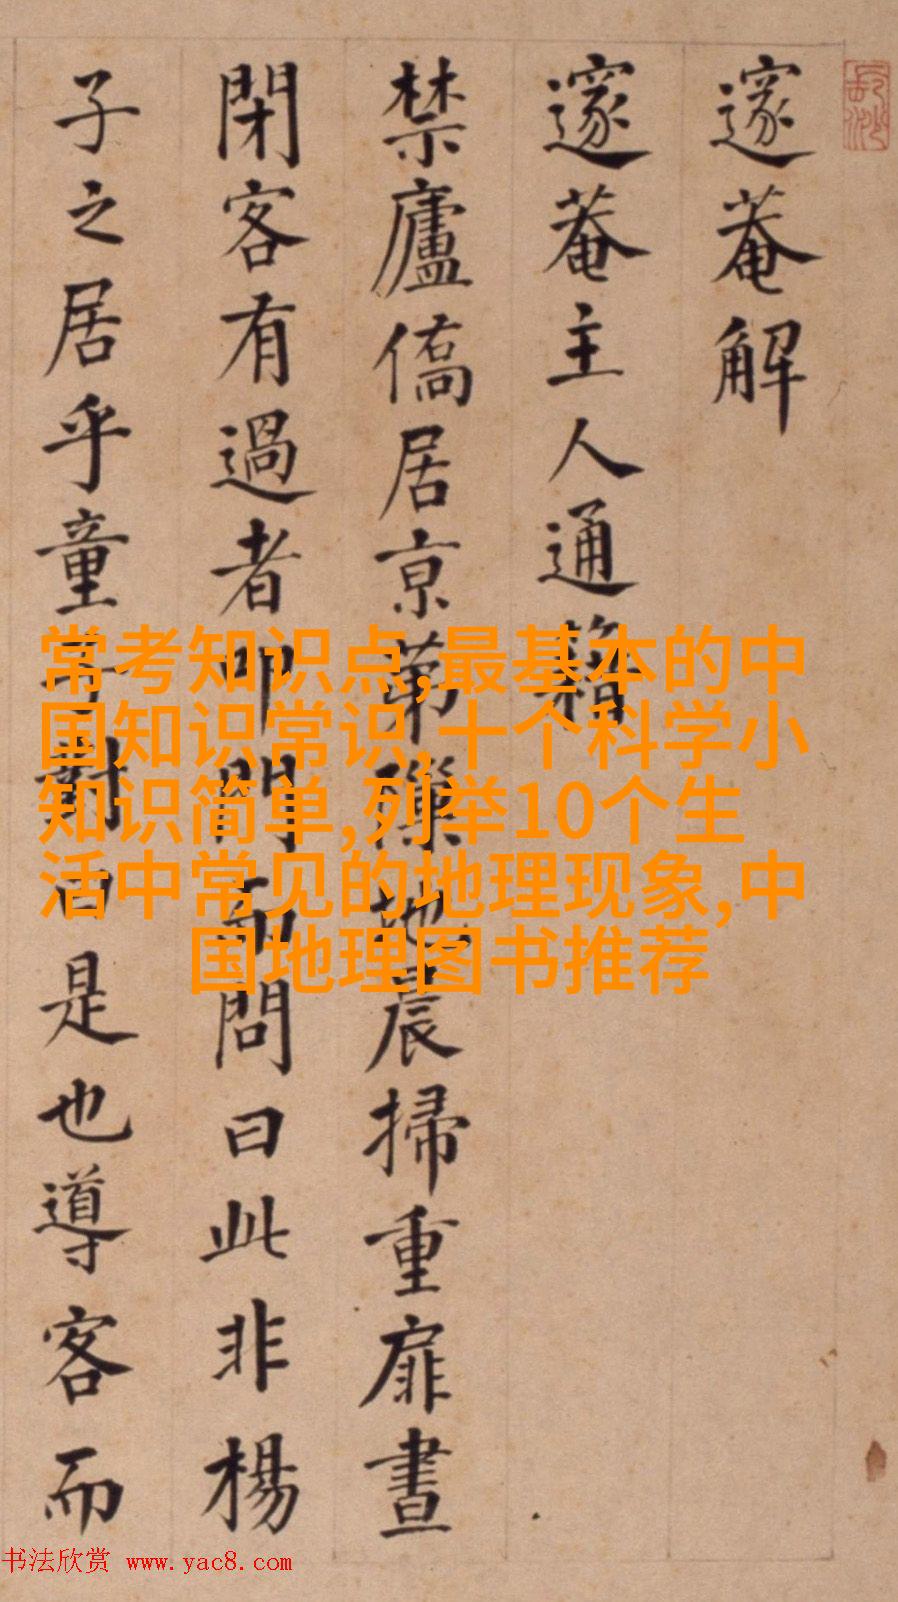 邃菴解
邃菴主人通籍
禁廬僑居京第隙地晨掃重扉晝
閉客有過者叩門而問曰此非楊
子之居乎童子對曰是也導客而
常考知识点,最基本的中
国知识常识,十个科学小
知识简单,列举10个生
活中常见的地理现象,中
国地理图书推荐
书法欣赏 www.yac8.com